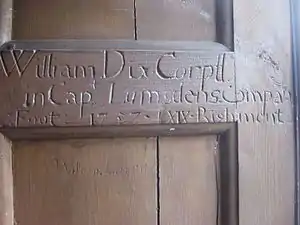 William Dix Corpll
in Cap Lumsdens Compan
Foot 1757 XIX Rishment